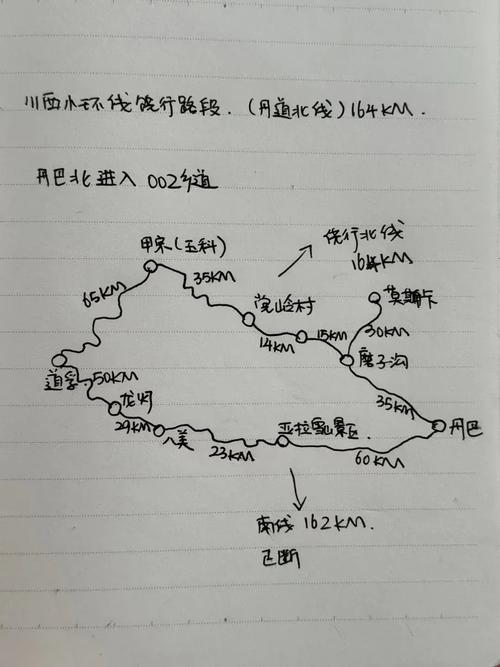 川西小环线绕行路段.(丹道北线)164KM.
丹巴北进入 002乡道
绕行北线
164KM
甲宗(玉科)
35KM
65KM
党岭村
莫斯卡
14KM
15KM
30KM
磨子沟
道孚
50KM
龙灯
35KM
29KM
八美
亚拉雪山景区.
丹巴
23KM
60KM
南线 162KM.
已断